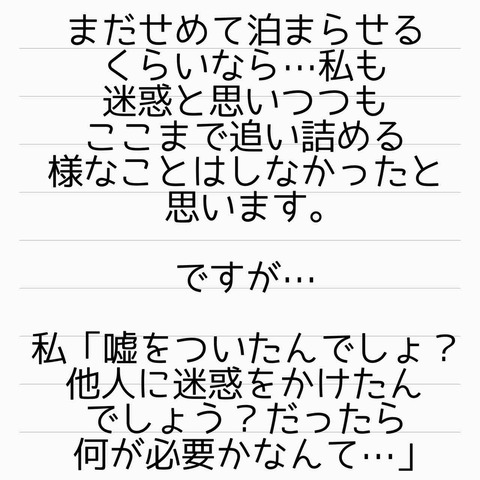 まだせめて泊まらせる
くらいなら…私も
迷惑と思いつつも
ここまで追い詰める
様なことはしなかったと
思います。
ですが…
私「嘘をついたんでしょ？
他人に迷惑をかけたん
でしょう？だったら
何が必要かなんて…」